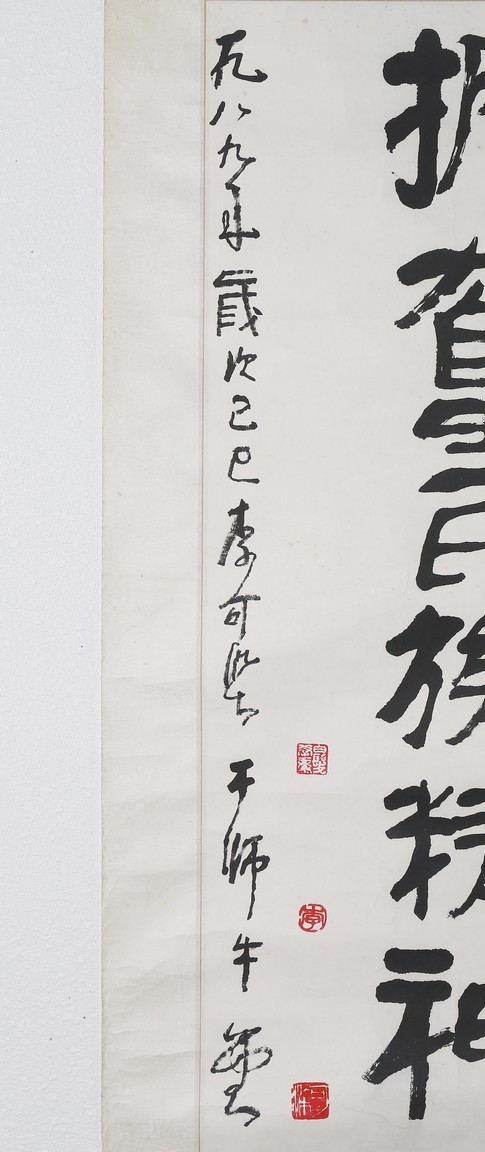 振奮民族精神
一九八九年歲次己巳李可染于師牛堂
李
可染